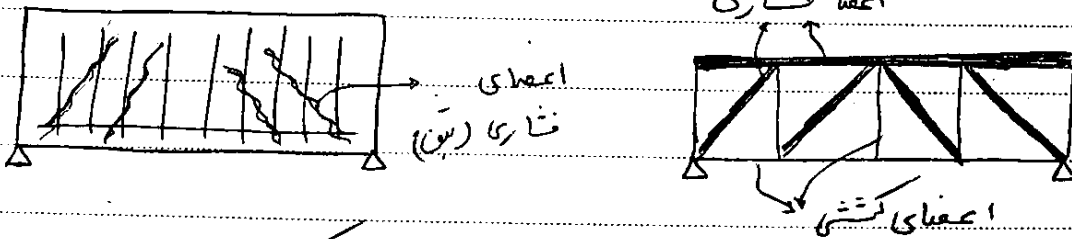 اعضا فشاری
اعضای
فشاری (بتن)
اعضای کششی